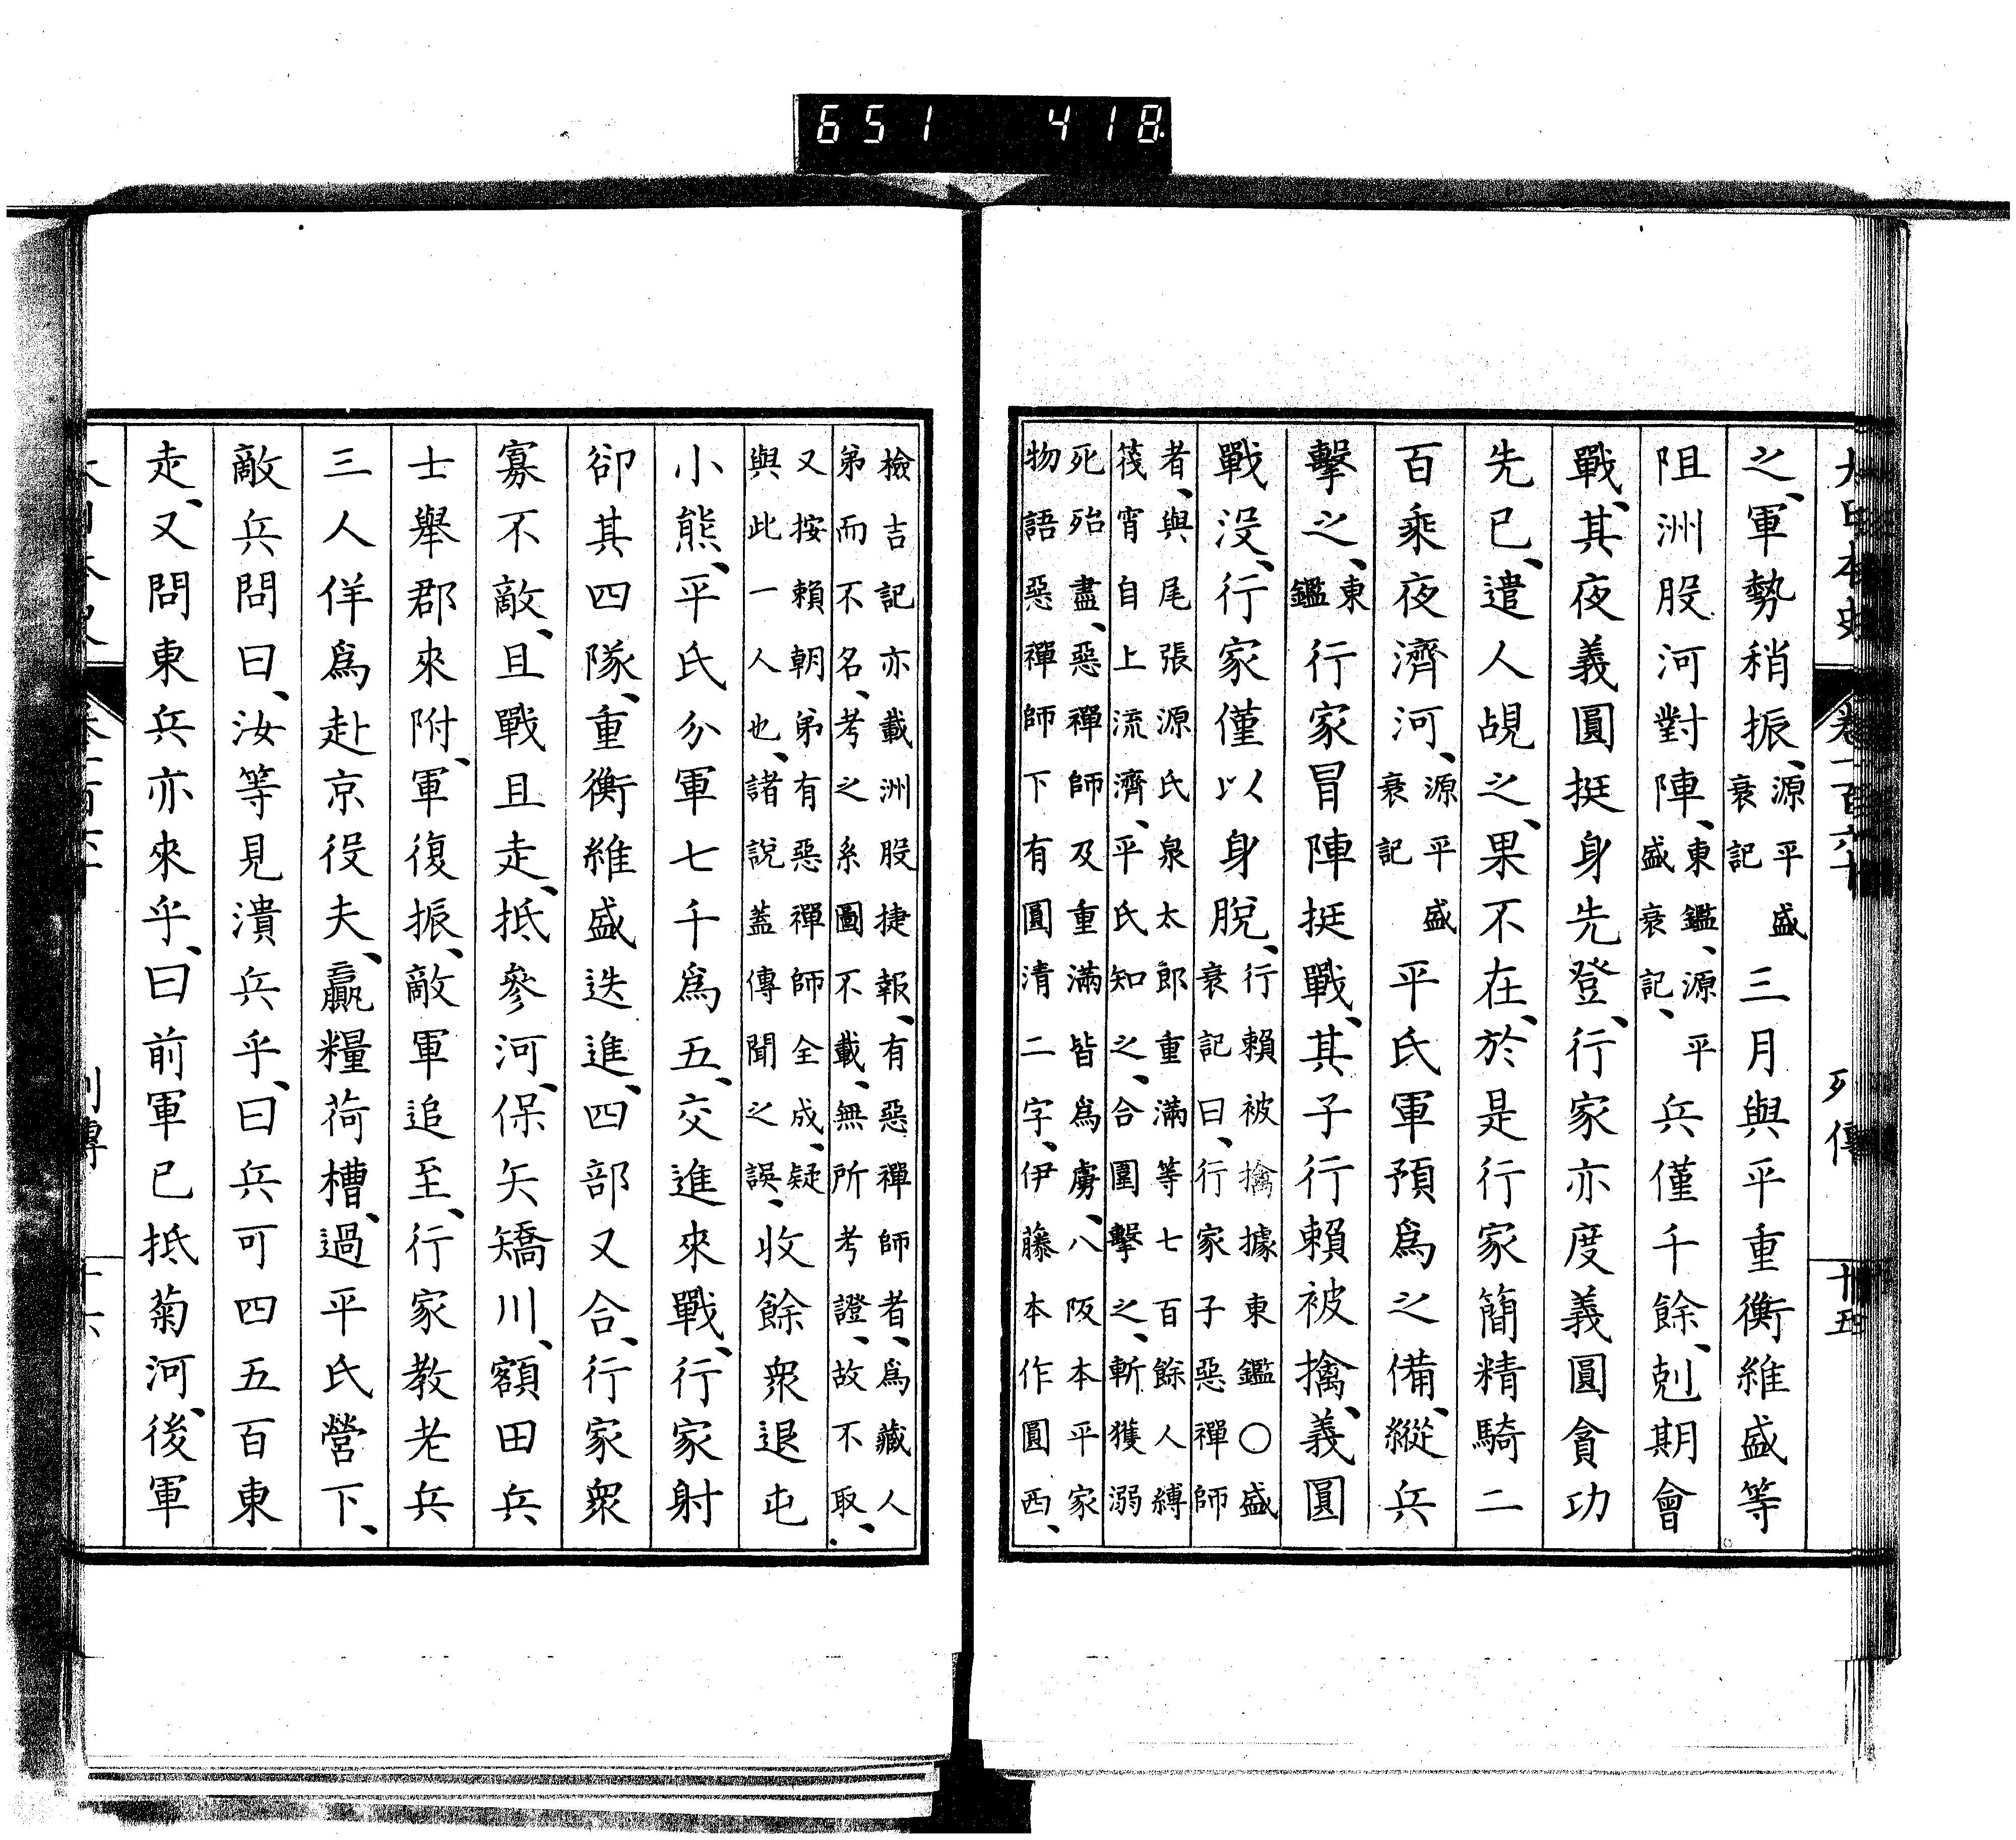 651 418
之、軍勢稍振、源平盛衰記三月與平重衡維盛等
阻洲股河對陣、東鑑、源平盛衰記、兵僅千餘、剋期會
戰、其夜義圓挺身先登、行家亦度義圓貪功
先已、遣人覘之、果不在、於是行家簡精騎二
百乘夜濟河、源平盛衰記平氏軍預爲之備、縱兵
擊之、東鑑行家冒陣挺戰、其子行賴被擒、義圓
戰没、行家僅以身脫、行賴被擒據東鑑○盛衰記曰、行家子惡禪師
者、與尾張源氏泉太郎重滿等七百餘人縛筏宵自上流濟、平氏知之、合圍擊之、斬獲溺
死殆盡、惡禪師及重滿皆爲虜、八阪本平家物語惡禪師下有圓清二字、伊藤本作圓西、
檢吉記亦載洲股捷報、有惡禪師者、爲藏人弟而不名、考之系圖不載、無所考證、故不取、
又按賴朝弟有惡禪師全成、疑與此一人也、諸說蓋傳聞之誤、收餘衆退屯
小熊、平氏分軍七千爲五、交進來戰、行家射
卻其四隊、重衡維盛迭進、四部又合、行家衆
寡不敵、且戰且走、抵參河、保矢矯川、額田兵
士舉郡來附、軍復振、敵軍追至、行家教老兵
三人佯爲赴京役夫、贏糧荷槽、過平氏營下、
敵兵問曰、汝等見潰兵乎、曰兵可四五百東
走、又問東兵亦來乎、曰前軍已抵菊河、後軍